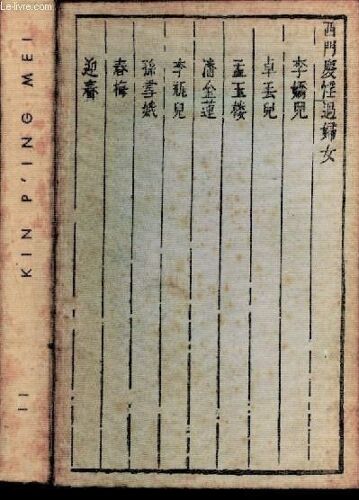 © Le-livre.com
西門慶淫過婦女
李嬌兒
卓丟兒
孟玉楼
潘金蓮
李瓶兒
孫雪娥
春梅
迎春
KIN P'ING MEI
II